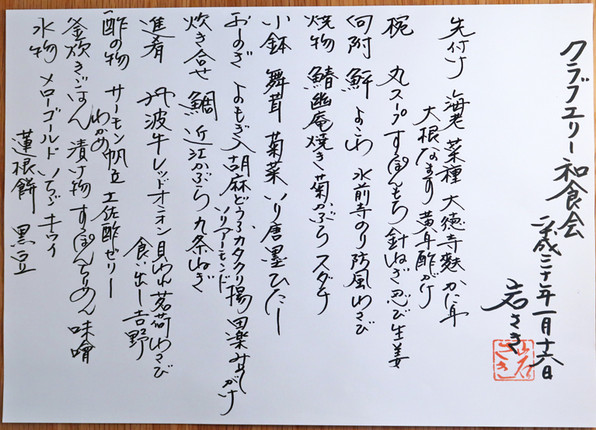 クラブエリー和食会
平成三十年一月十六日
岩さき
先付け 海老 菜種 大徳寺麩 かに身
大根なます 黄身酢がけ
椀 丸スープ すっぽんもち 針ねぎ 忍び生姜
向附 鮃 よこわ 水前寺のり 防風 わさび
焼物 鰆幽庵焼き 菊かぶら スダチ
小鉢 舞茸 菊菜 いり唐墨 ひたし
おしのぎ よもぎ入胡麻どうふ カタクリ揚 田楽みそがけ
ソリアーモンド
炊き合せ 鯛 近江かぶら 九条ねぎ
進肴 丹波牛 レッドオニオン 貝われ 茗荷 わさび
食い出し 吉野
酢の物 サーモン 帆立 土佐酢ゼリー
わかめ
釜炊きごはん 漬け物 すっぽんちりめん 味噌
水物 メローゴールド いちご キウイ
蓮根餅 黒豆